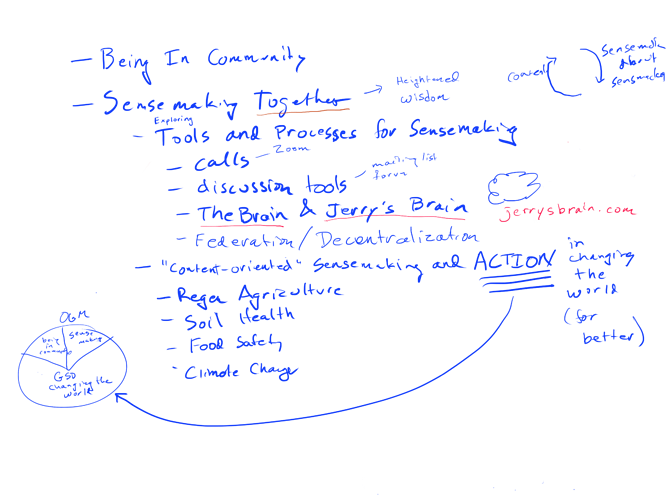 - Being In Community
- Sensemaking Together → Heightened wisdom
Exploring
- Tools and Processes for Sensemaking
- calls - Zoom
- discussion tools - mailing list forum
- The Brain & Jerry's Brain
jerrysbrain.com
- Federation/Decentralization
- "content-oriented" Sensemaking and ACTION
in
changing
the
world
(for
better)
- Regen Agriculture
- Soil Health
- Food Safety
- Climate Change
content
Sensemaking
about
sensmaking
OGM
being
in
community
sense
making
GSD
changing the
world